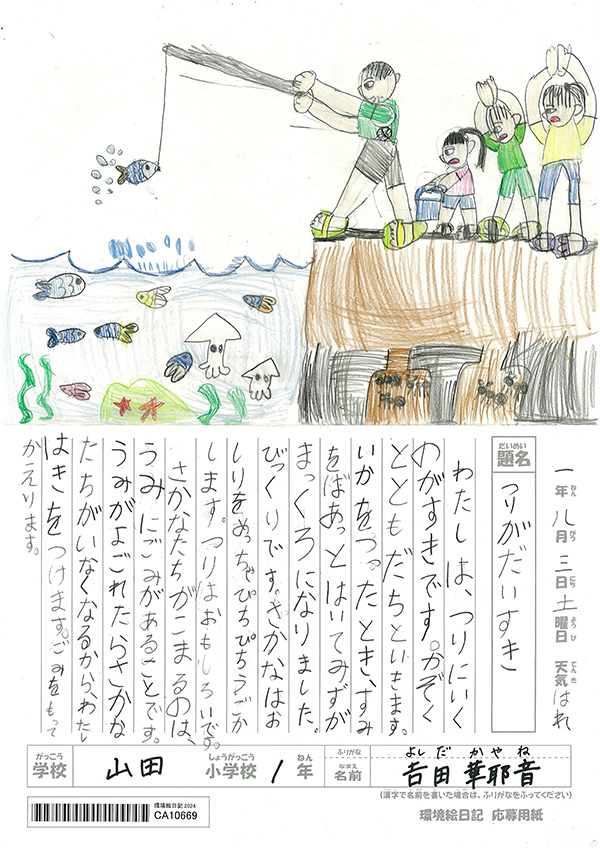 一年八月三日土曜日 天気はれ
ねん がつ にち ようび てんき
だいめい
題名 つりがだいすき
わたしは、つりにいく
のがすきです。かぞく
とともだちといきます。
いかをつったとき、すみ
をばあっとはいてみずが
まっくろになりました。
びっくりです。さかなはお
しりをめっちゃぴちぴちうごか
します。つりはおもしろいです。
さかなたちがこまるのは、
うみにごみがあることです。
うみがよごれたらさかな
たちがいなくなるから、わたし
はきをつけます。ごみをもって
かえります。
がっこう しょうがっこう ねん
学校 山田 小学校 1年
ふりがな よしだ かやね
なまえ
名前 吉田 華耶音
(漢字で名前を書いた場合は、ふりがなをふってください)
環境絵日記2024
CA10669
環境絵日記 応募用紙